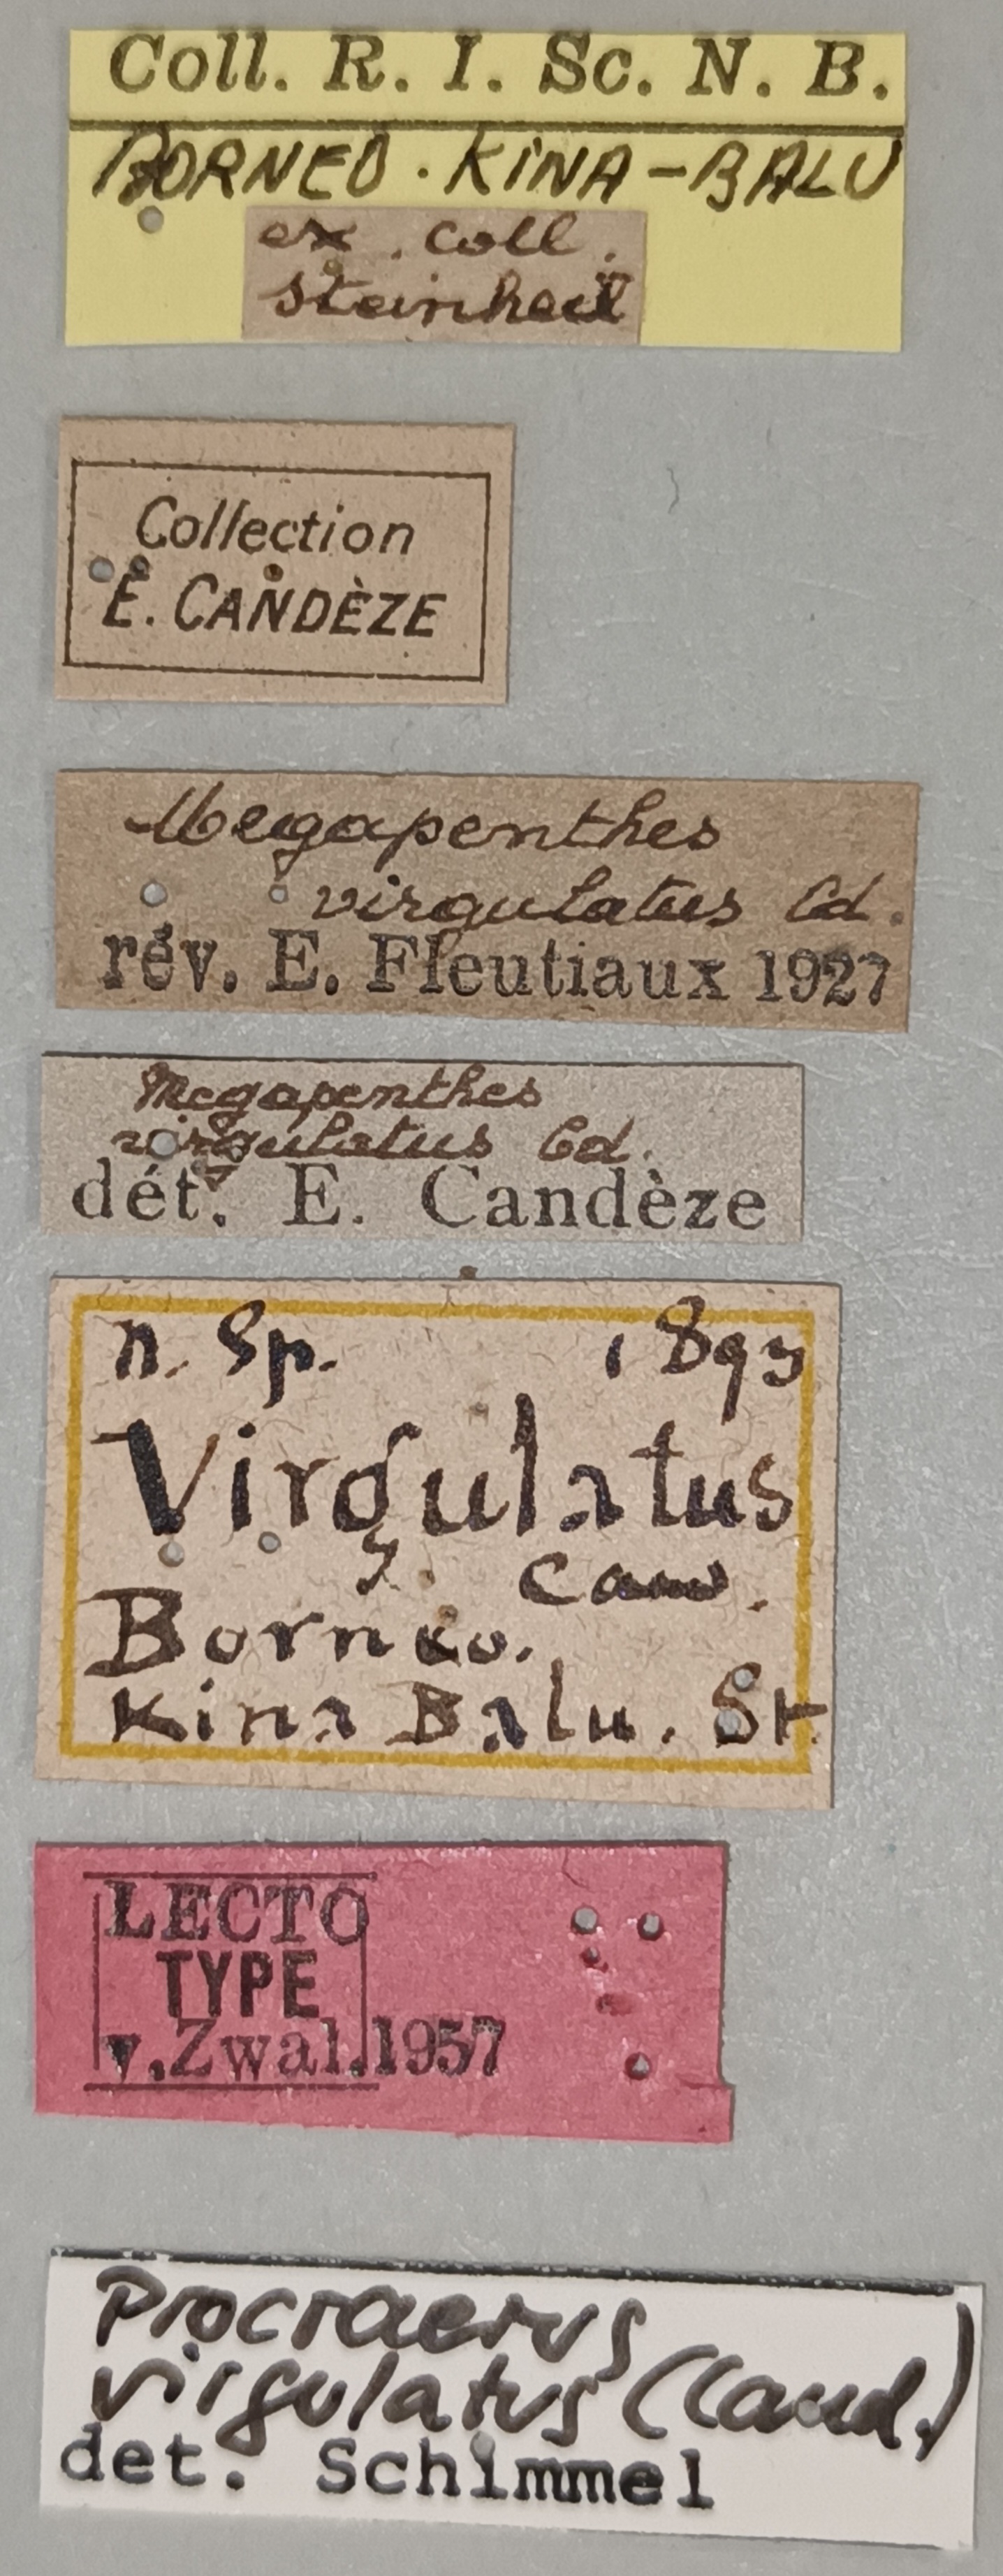 Coll. R. I. Sc. N. B.
BORNEO. KINA-BALU
ex. coll.
Steinheil
Collection
E. CANDÈZE
Megapenthes
virgulatus Cd.
rév. E. Fleutiaux 1927
Megapenthes
virgulatus Cd.
dét. E. Candèze
n. Sp. 1893
Virgulatus
Borneo.
Kina Balu. St
LECTO
TYPE
v.Zwal.1957
Procraerus
virgulatus (Cand.)
det. Schimmel